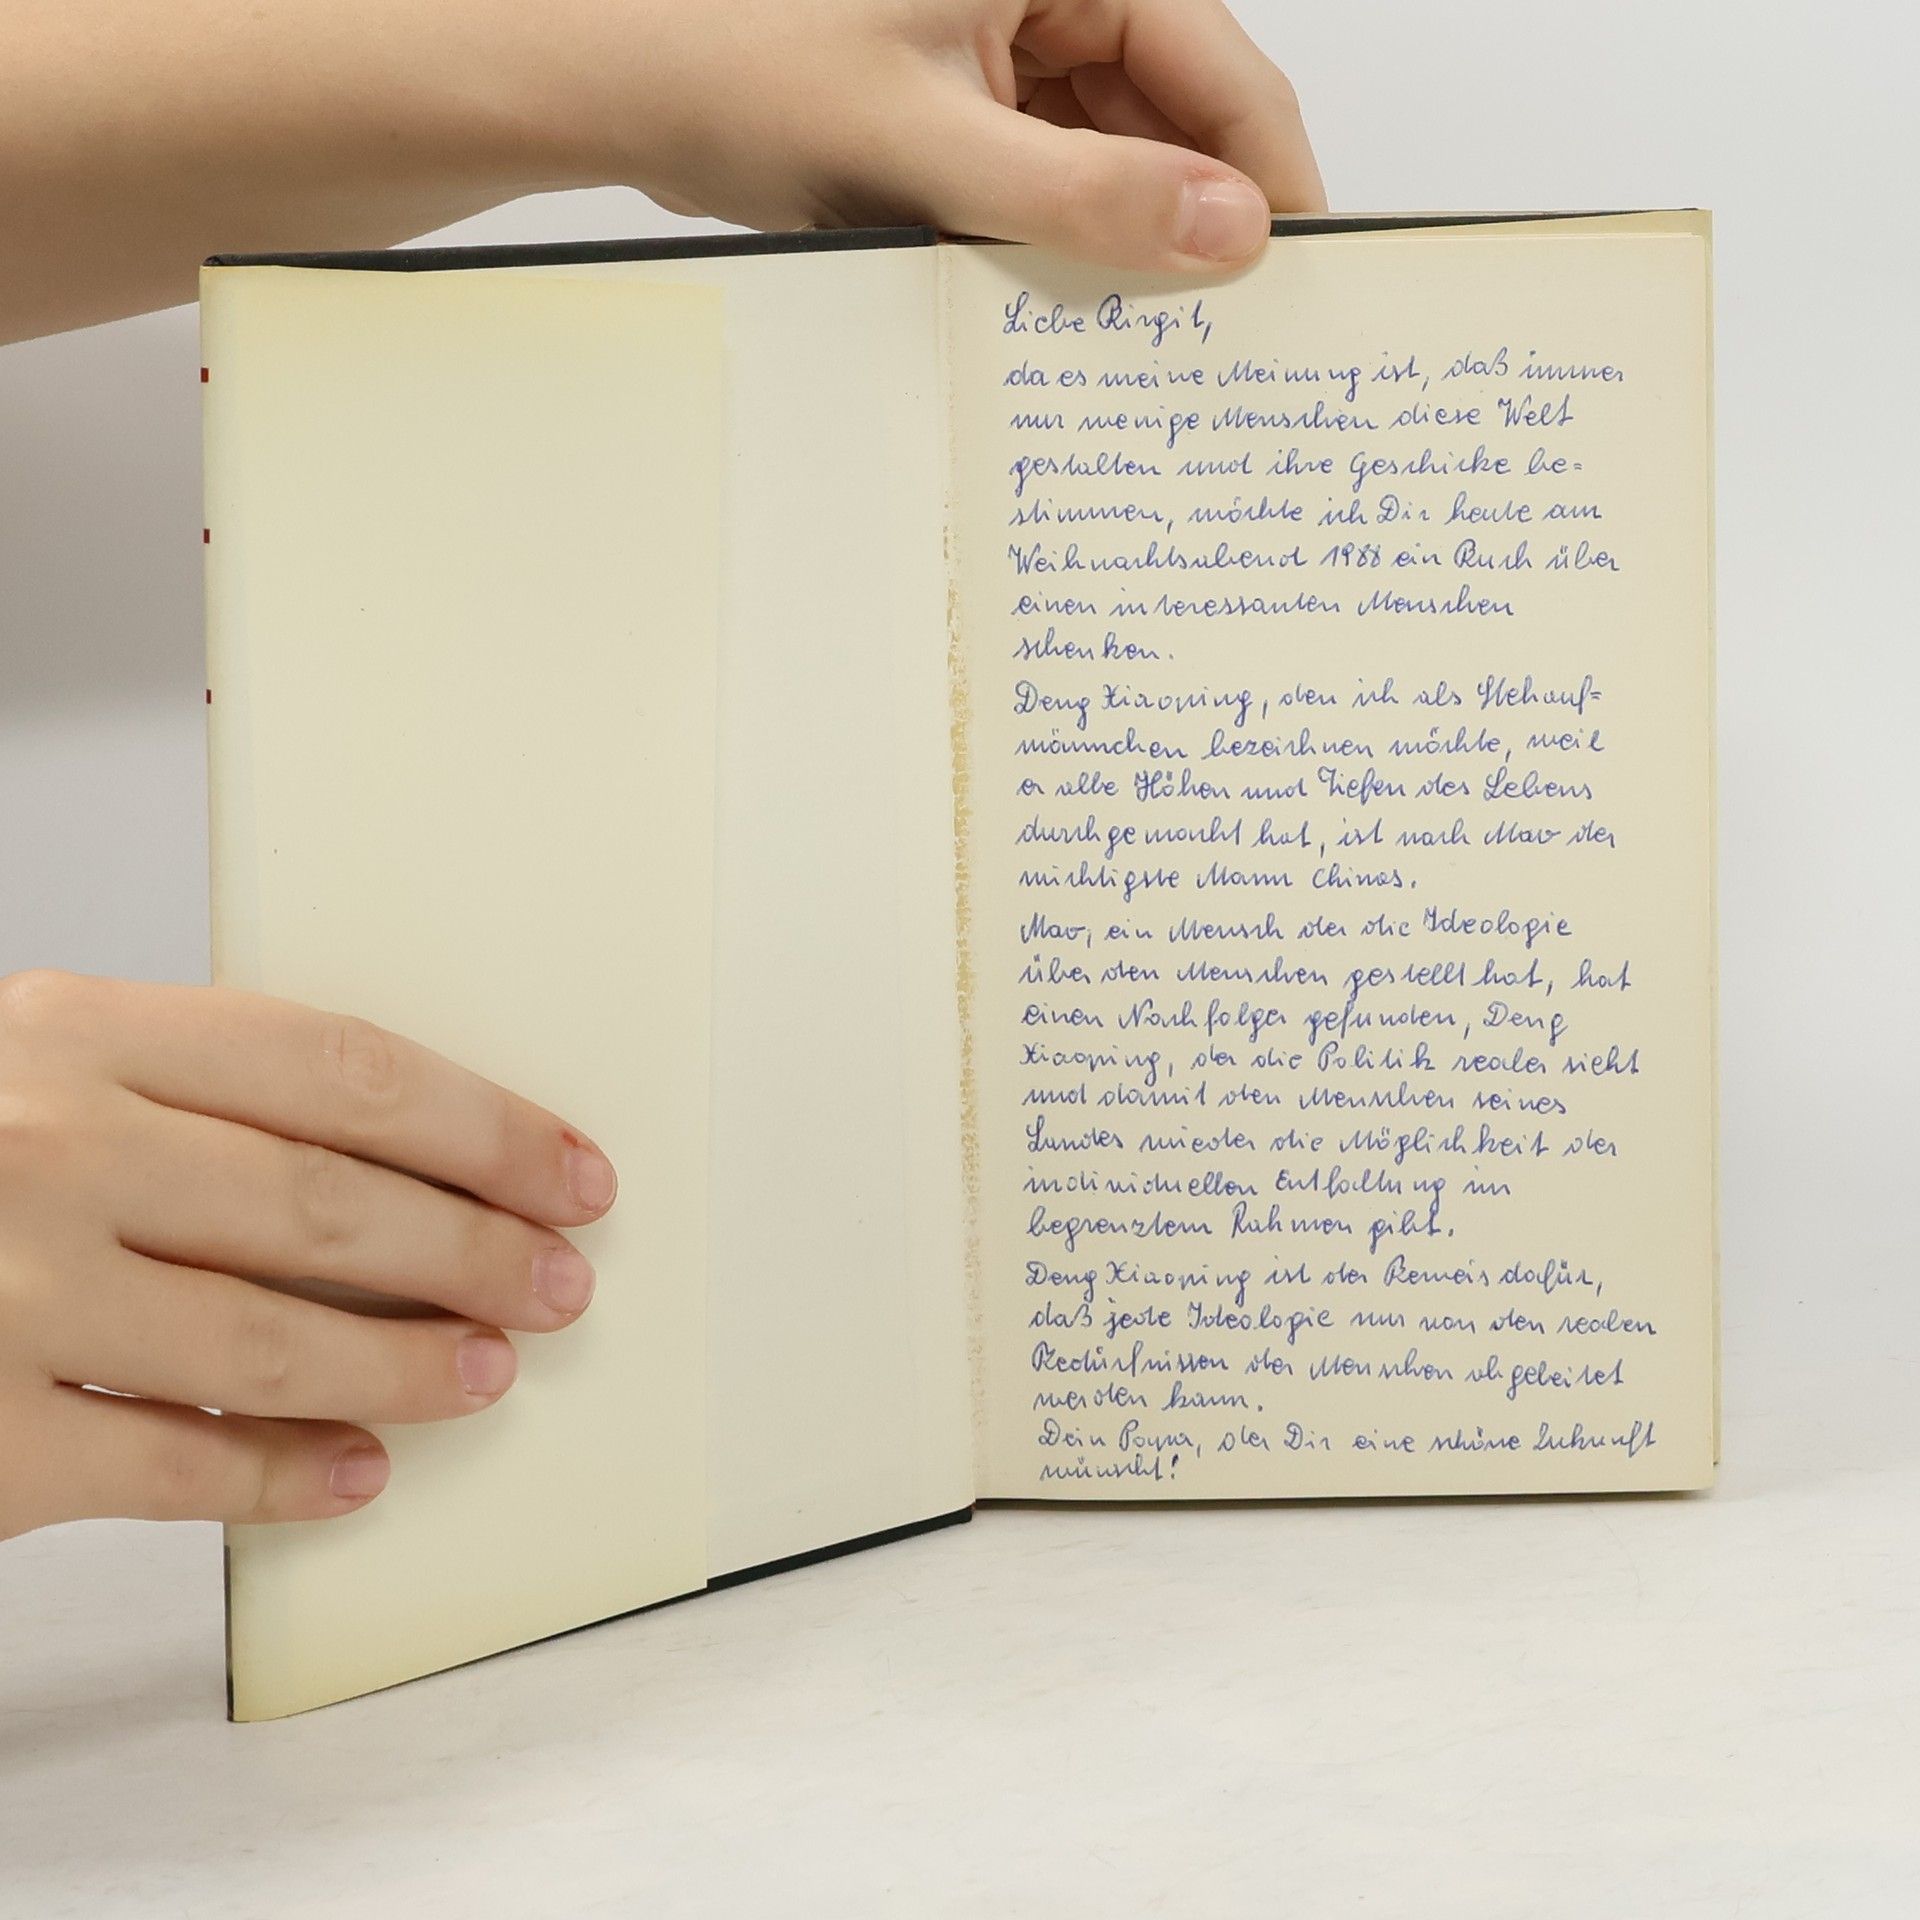 Liebe Birgit,
da es meine Meinung ist, daß immer
nur wenige Menschen diese Welt
gestalten und ihre Geschicke be=
stimmen, möchte ich Dir heute am
Weihnachtsabend 1988 ein Buch über
einen interessanten Menschen
schenken.
Deng Xiaoping, den ich als Stehauf=
männchen bezeichnen möchte, weil
er alle Höhen und Tiefen des Lebens
durchgemacht hat, ist nach Mao der
wichtigste Mann Chinas.
Mao, ein Mensch der die Ideologie
über den Menschen gestellt hat, hat
einen Nachfolger gefunden, Deng
Xiaoping, der die Politik realer sieht
und damit den Menschen seines
Landes wieder die Möglichkeit der
individuellen Entfaltung im
begrenztem Rahmen gibt.
Deng Xiaoping ist der Beweis dafür,
daß jede Ideologie nur von den realen
Bedürfnissen der Menschen abgeleitet
werden kann.
Dein Papa, der Dir eine schöne Zukunft
wünscht!